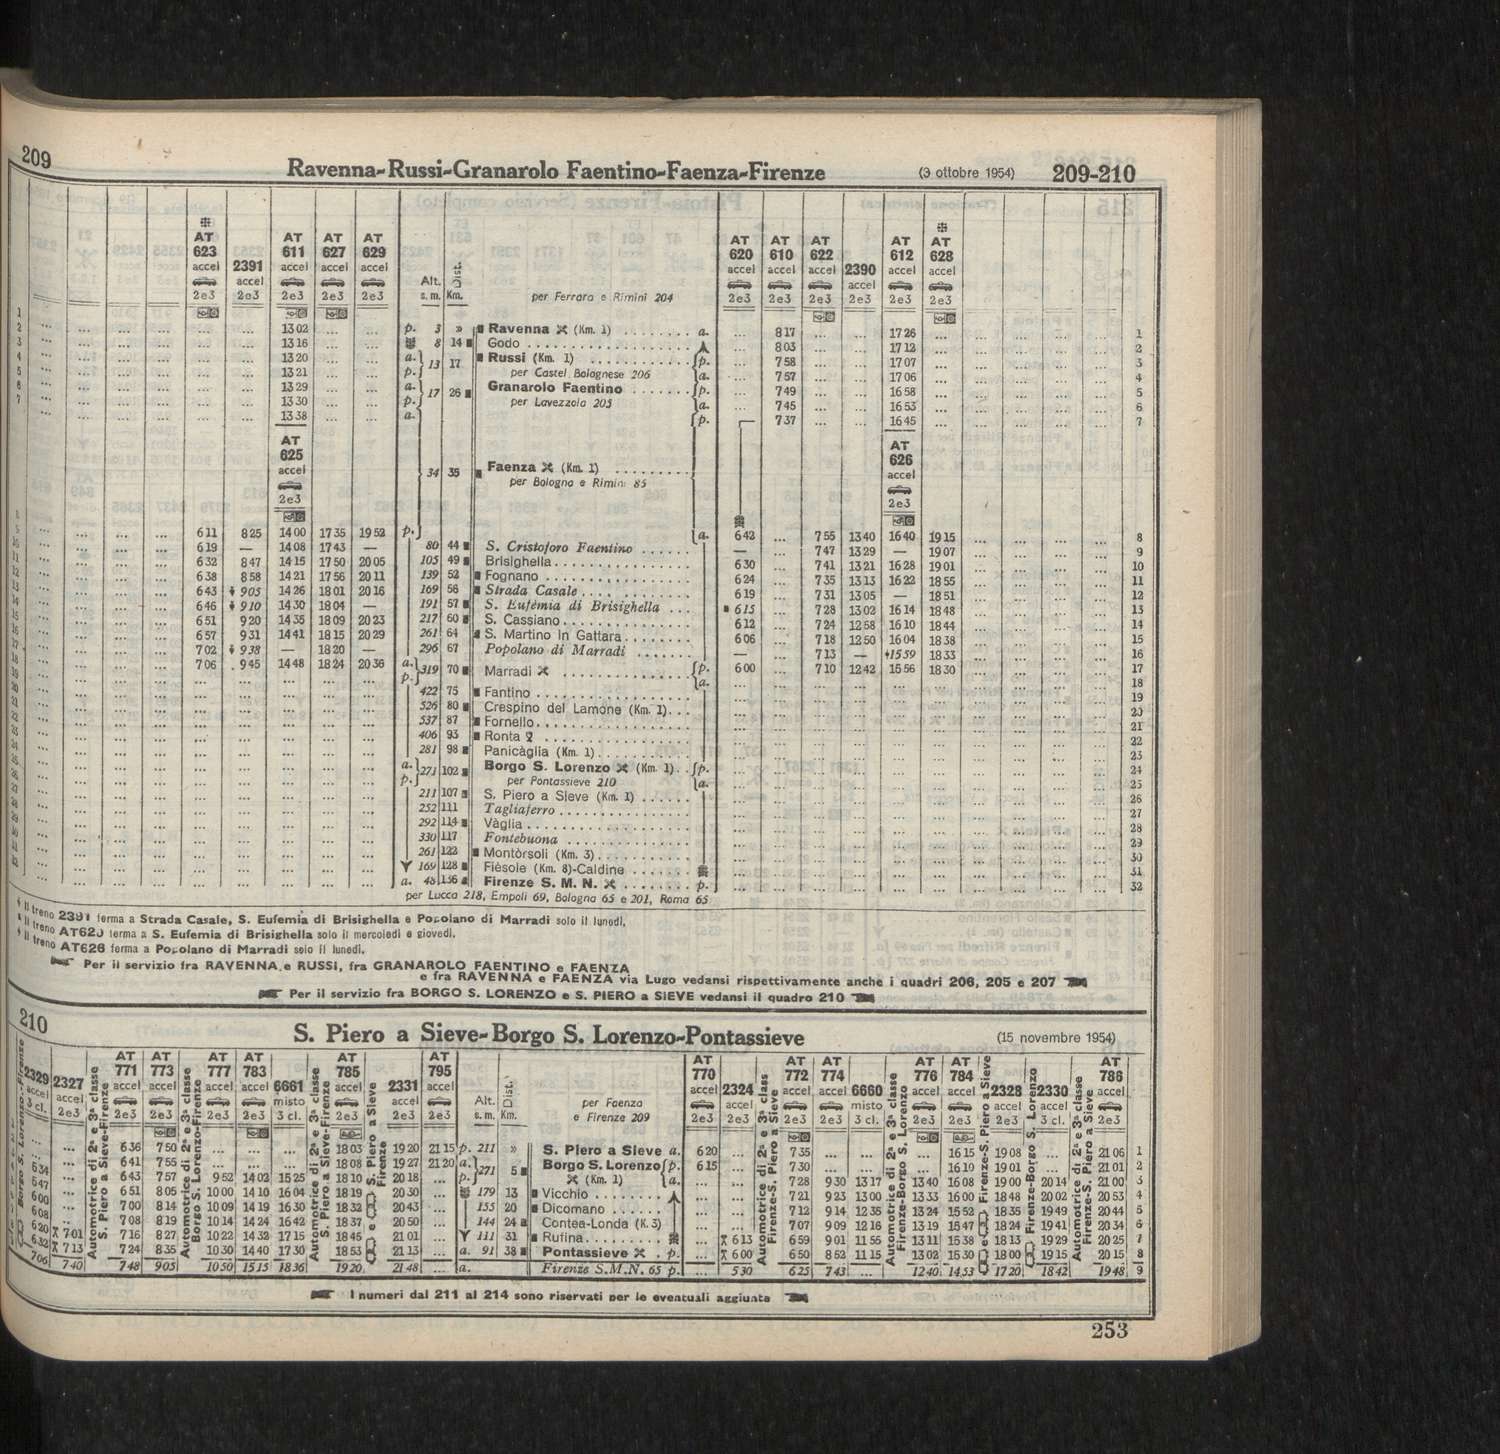 209
Ravenna-Russi-Granarolo Faentino-Faenza-Firenze (3 ottobre 1954) 209-210
AT 623 accel 2e3
2391 accel 2e3
AT 611 accel 2e3
AT 627 accel 2e3
AT 629 accel 2e3
Alt. s. m. Dist. Km.
per Ferrara e Rimini 204
AT 620 accel 2e3
AT 610 accel 2e3
AT 622 accel 2e3
2390 accel 2e3
AT 612 accel 2e3
AT 628 accel 2e3
1 ... ... ... ... ... ... 13 02 ... ... p. 3 » Ravenna (Km. 1) a. ... 8 17 ... ... 17 26 ... 1
13 16 8 14 Godo ... 8 03 ... ... 17 12 ... 2
13 20 a. 13 17 Russi (Km. 1) p. ... 7 58 ... ... 17 07 ... 3
13 21 p. per Castel Bolognese 206 a. ... 7 57 ... ... 17 06 ... 4
13 29 a. 17 26 Granarolo Faentino p. ... 7 49 ... ... 16 58 ... 5
13 30 p. per Lavezzola 205 a. ... 7 45 ... ... 16 53 ... 6
13 38 a. p. 7 37 ... ... 16 45 ... 7
AT 625 accel 2e3
AT 626 accel 2e3
34 35 Faenza (Km. 1)
per Bologna e Rimini 85
6 11 8 25 14 00 17 35 19 52 p. a. 6 42 ... 7 55 13 40 16 40 19 15 8
6 19 — 14 08 17 43 — 80 44 S. Cristoforo Faentino — ... 7 47 13 29 — 19 07 9
6 32 8 47 14 15 17 50 20 05 105 49 Brisighella 6 30 ... 7 41 13 21 16 28 19 01 10
6 38 8 58 14 21 17 56 20 11 139 52 Fognano 6 24 ... 7 35 13 13 16 22 18 55 11
6 43 9 05 14 26 18 01 20 16 169 56 Strada Casale 6 19 ... 7 31 13 05 — 18 51 12
6 46 9 10 14 30 18 04 — 191 57 S. Eufémia di Brisighella 6 15 ... 7 28 13 02 16 14 18 48 13
6 51 9 20 14 35 18 09 20 23 217 60 S. Cassiano 6 12 ... 7 24 12 58 16 10 18 44 14
6 57 9 31 14 41 18 15 20 29 261 64 S. Martino In Gattara 6 06 ... 7 18 12 50 16 04 18 38 15
7 02 9 38 — 18 20 — 296 67 Popolano di Marradi — ... 7 13 — 15 59 18 33 16
7 06 9 45 14 48 18 24 20 36 a. p. 319 70 Marradi p. a. 6 00 ... 7 10 12 42 15 56 18 30 17
18
422 75 Fantino 19
526 80 Crespino del Lamone (Km. 1) 20
537 87 Fornello 21
406 93 Ronta 22
281 98 Panicàglia (Km. 1) 23
a. p. 271 102 Borgo S. Lorenzo (Km. 1) p. 24
per Pontassieve 210 a. 25
211 107 S. Piero a Sieve (Km. 1) 26
252 111 Tagliaferro 27
292 114 Vàglia 28
330 117 Fontebuona 29
261 122 Montòrsoli (Km. 3) 30
169 128 Fièsole (Km. 8)-Caldine 31
a. 48 136 Firenze S. M. N. p. 32
per Lucca 218, Empoli 69, Bologna 65 e 201, Roma 65
Il treno 2391 ferma a Strada Casale, S. Eufemia di Brisighella e Popolano di Marradi solo il lunedì.
Il treno AT620 ferma a S. Eufemia di Brisighella solo il mercoledì e giovedì.
Il treno AT626 ferma a Popolano di Marradi solo il lunedì.
Per il servizio fra RAVENNA e RUSSI, fra GRANAROLO FAENTINO e FAENZA
e fra RAVENNA e FAENZA via Lugo vedansi rispettivamente anche i quadri 206, 205 e 207
Per il servizio fra BORGO S. LORENZO e S. PIERO a SIEVE vedansi il quadro 210
210
S. Piero a Sieve-Borgo S. Lorenzo-Pontassieve (15 novembre 1954)
2329 accel 3 cl.
2327 accel 2e3
Automotrice di 2ª e 3ª classe S. Piero a Sieve-Firenze
AT 771 accel 2e3
AT 773 accel 2e3
Automotrice di 2ª e 3ª classe Borgo S. Lorenzo-Firenze
AT 777 accel 2e3
AT 783 accel 2e3
6661 misto 3 cl.
Automotrice di 2ª e 3ª classe S. Piero a Sieve-Firenze
AT 785 accel 2e3
S. Piero a Sieve e Firenze
2331 accel 2e3
AT 795 accel 2e3
Alt. s. m. Dist. Km.
per Faenza e Firenze 209
AT 770 accel 2e3
2324 accel 2e3
Automotrice di 2ª e 3ª class Firenze-S. Piero a Sieve
AT 772 accel 2e3
AT 774 accel 2e3
6660 misto 3 cl.
Automotrice di 2ª e 3ª classe Firenze-Borgo S. Lorenzo
AT 776 accel 2e3
AT 784 accel 2e3
e Firenze-S. Piero a Sieve
2328 accel 2e3
Firenze-Borgo S. Lorenzo
2330 accel 3 cl.
Automotrice di 2ª e 3ª classe Firenze-S. Piero a Sieve
AT 786 accel 2e3
... ... 6 36 7 50 ... ... ... 18 03 19 20 21 15 p. 211 » S. Piero a Sieve a. 6 20 ... 7 35 ... ... ... 16 15 19 08 ... 21 06 1
... ... 6 41 7 55 ... ... ... 18 08 19 27 21 20 a. 271 5 Borgo S. Lorenzo p. 6 15 ... 7 30 ... ... ... 16 10 19 01 ... 21 01 2
6 34 ... 6 43 7 57 9 52 14 02 15 25 18 10 20 18 ... p. (Km. 1) a. ... ... 7 28 9 30 13 17 13 40 16 08 19 00 20 14 21 00 3
6 47 ... 6 51 8 05 10 00 14 10 16 04 18 19 20 30 ... 179 13 Vicchio ... ... 7 21 9 23 13 00 13 33 16 00 18 48 20 02 20 53 4
6 00 ... 7 00 8 14 10 09 14 19 16 30 18 32 20 43 ... 155 20 Dicomano ... ... 7 12 9 14 12 35 13 24 15 52 18 35 19 49 20 44 5
6 08 ... 7 08 8 19 10 14 14 24 16 42 18 37 20 50 ... 144 24 Contea-Londa (K. 3) ... ... 7 07 9 09 12 16 13 19 15 47 18 24 19 41 20 34 6
6 20 7 01 7 16 8 27 10 22 14 32 17 15 18 45 21 01 ... 111 31 Rufina ... 6 13 6 59 9 01 11 56 13 11 15 38 18 13 19 29 20 25 7
6 32 7 13 7 24 8 35 10 30 14 40 17 30 18 53 21 13 ... a. 91 38 Pontassieve p. ... 6 00 6 50 8 52 11 15 13 02 15 30 18 00 19 15 20 15 8
7 06 7 40 7 48 9 03 10 50 15 15 18 36 19 20 21 48 ... a. Firenze S.M.N. 65 p. ... 5 30 6 25 7 43 ... 12 40 14 53 17 20 18 42 19 48 9
I numeri dal 211 al 214 sono riservati per le eventuali aggiunte
253